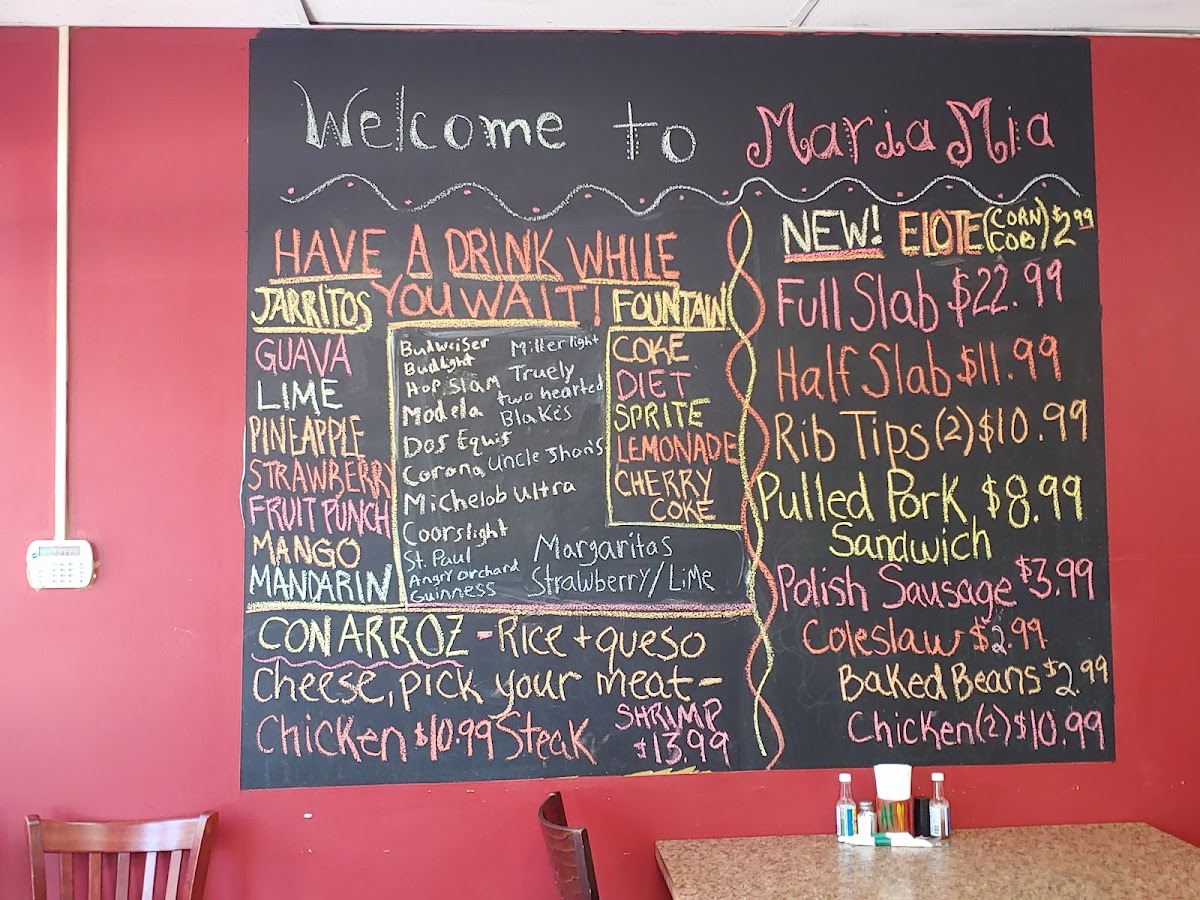 Welcome to Maria Mia
HAVE A DRINK WHILE
YOU WAIT!
JARRITOS
GUAVA
LIME
PINEAPPLE
STRAWBERRY
FRUIT PUNCH
MANGO
MANDARIN
Budweiser
Budlight
Hop Slam
Modela
Dos Equis
Corona
Michelob Ultra
Coorslight
St. Paul
Angry orchard
Guinness
Miller light
Truely
two hearted
Blake's
Uncle Jhon's
Margaritas
Strawberry/Lime
FOUNTAIN
COKE
DIET
SPRITE
LEMONADE
CHERRY
COKE
CON ARROZ - Rice + queso
cheese, pick your meat -
Chicken $10.99 Steak SHRIMP
$13.99
NEW! ELOTE (CORN COB) $2.99
Full Slab $22.99
Half Slab $11.99
Rib Tips (2) $10.99
Pulled Pork $8.99
Sandwich
Polish Sausage $3.99
Coleslaw $2.99
Baked Beans $2.99
Chicken (2) $10.99